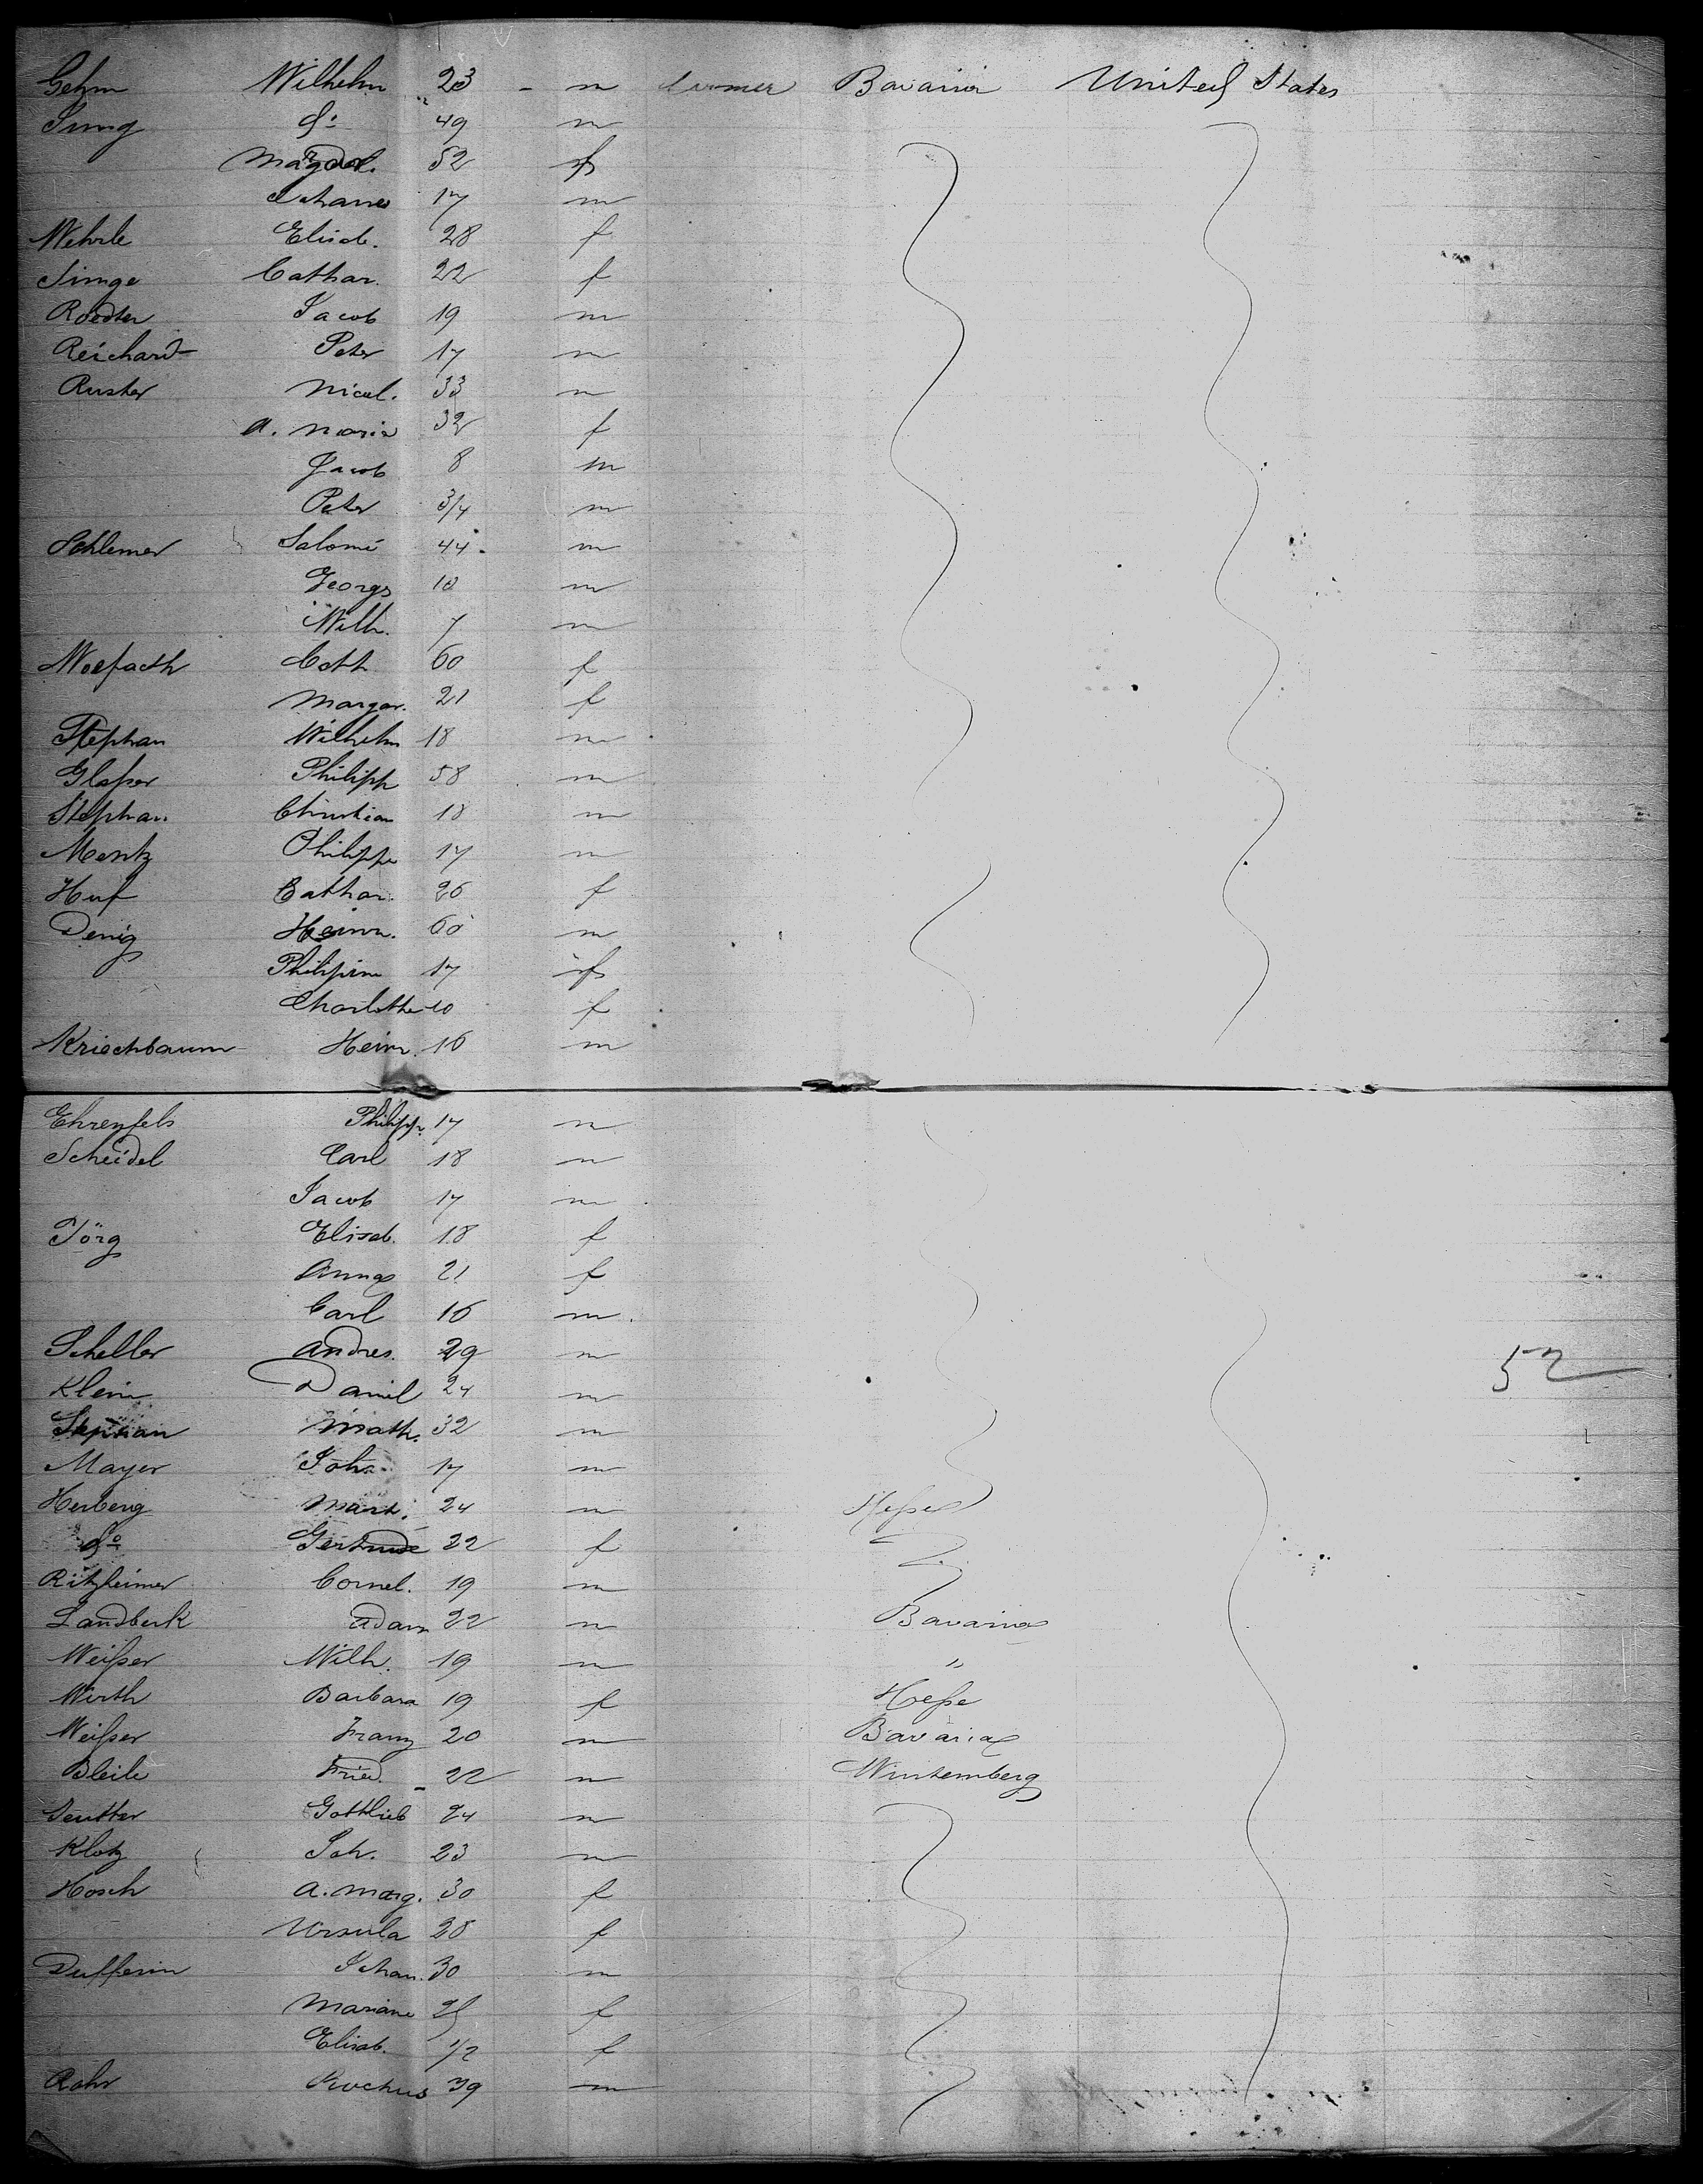 Gehm Wilhelm 23 - m farmer Bavaria United States
Jung do 49 m
Magdal. 52 f
Johannes 17 m
Wehrle Elisab. 28 f
Cathar. 22 f
Roedter Jacob 19 m
Reichard Peter 17 m
Ruster Nicol. 33 m
A. Maria 32 f
Jacob 8 m
Peter 3/4 m
Schlemer Salomé 44 m
Georg 10 m
Wilh. 7 m
Cath 60 f
Margar. 21 f
Stephan Wilhelm 18 m
Glaßer Philipp 58 m
Stephan Christian 18 m
Mentz Philipp 17 m
Huf Cathar. 26 f
Denig Heinr. 60 m
Philipine 17 f
Charlotte 10 f
Kriechbaum Heinr. 16 m
Ehrenfels Philipp. 17 m
Scheidel Carl 18 m
Jacob 17 m
Jörg Elisab. 18 f
Anna 21 f
Carl 16 m
Scheller Andres. 29 m 52
Klein Daniel 24 m
Stephan Math. 32 m
Mayer Joh. 17 m
Herberg Mart. 24 m Heße
do Gertrude 22 f
Ritzheimer Cornel. 19 m
Landberk Adam 22 m Bavaria
Weißer Wilh. 19 m "
Wirth Barbara 19 f Heße
Weißer Franz 20 m Bavaria
Bleile Fried. 22 m Wurtemberg
Seutter Gottlieb 24 m
Klotz Joh. 23 m
Hosch A. Marg. 30 f
Ursula 28 f
Dufferin Johan. 30 m
Mariane 25 f
Elisab. 1/2 f
Rohr Rochus 39 m